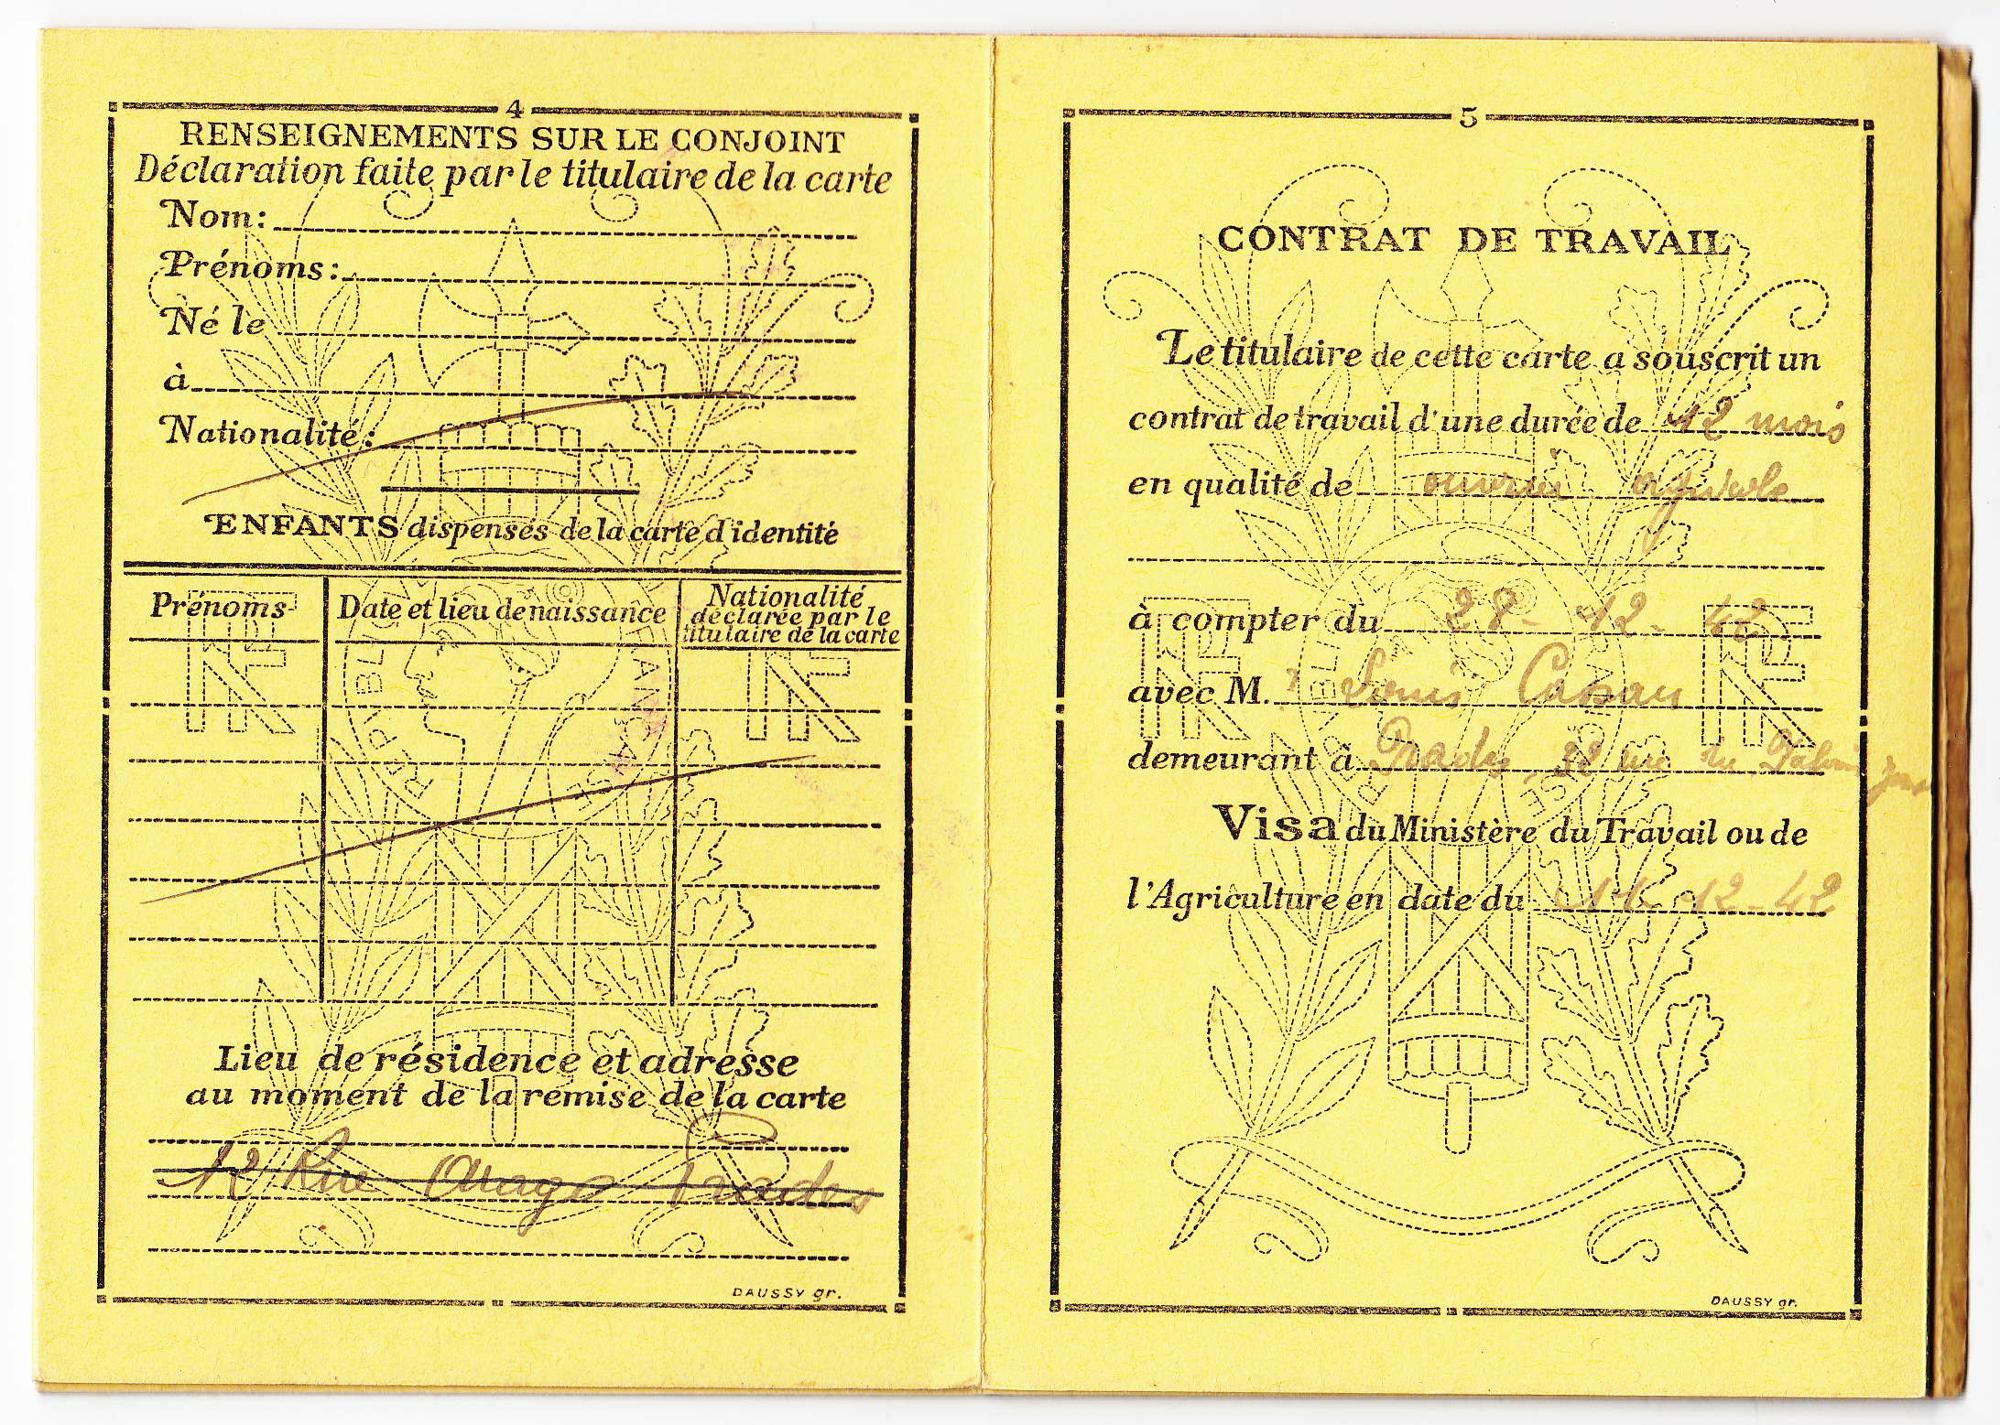 4
RENSEIGNEMENTS SUR LE CONJOINT
Déclaration faite par le titulaire de la carte
Nom:
Prénoms:
Né le
à
Nationalité:
ENFANTS dispensés de la carte d'identité
Prénoms
Date et lieu de naissance
Nationalité
déclarée par le
titulaire de la carte
RF
RÉPUBLIQUE FRANÇAISE
RF
Lieu de résidence et adresse
au moment de la remise de la carte
12 Rue Arago Prades
DAUSSY gr.
5
CONTRAT DE TRAVAIL
Le titulaire de cette carte a souscrit un
contrat de travail d'une durée de 12 mois
en qualité de ouvrier agricole
à compter du 28-12-42
avec M. Louis Cassan
demeurant à Prades 32 rue du
RF
RÉPUBLIQUE FRANÇAISE
RF
Visa du Ministère du Travail ou de
l'Agriculture en date du 11-12-42
DAUSSY gr.